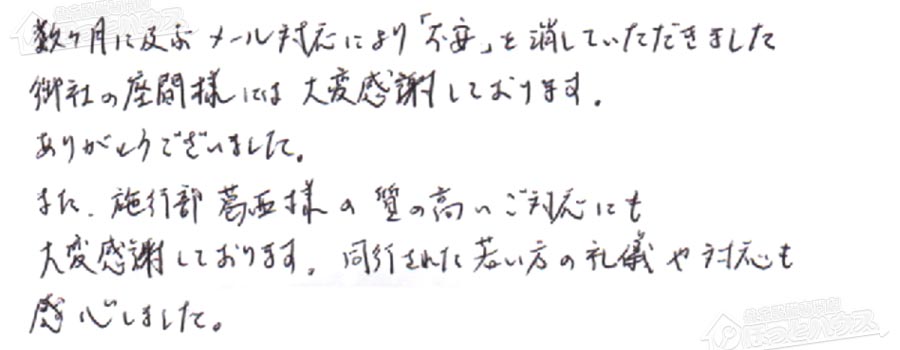 数ヶ月に及ぶメール対応により「不安」を消していただきました
御社の座間様には大変感謝しております。
ありがとうございました。
また、施行部葛西様の質の高いご対応にも
大変感謝しております。同行された若い方の礼儀や対応も
感心しました。
ほっとハウス